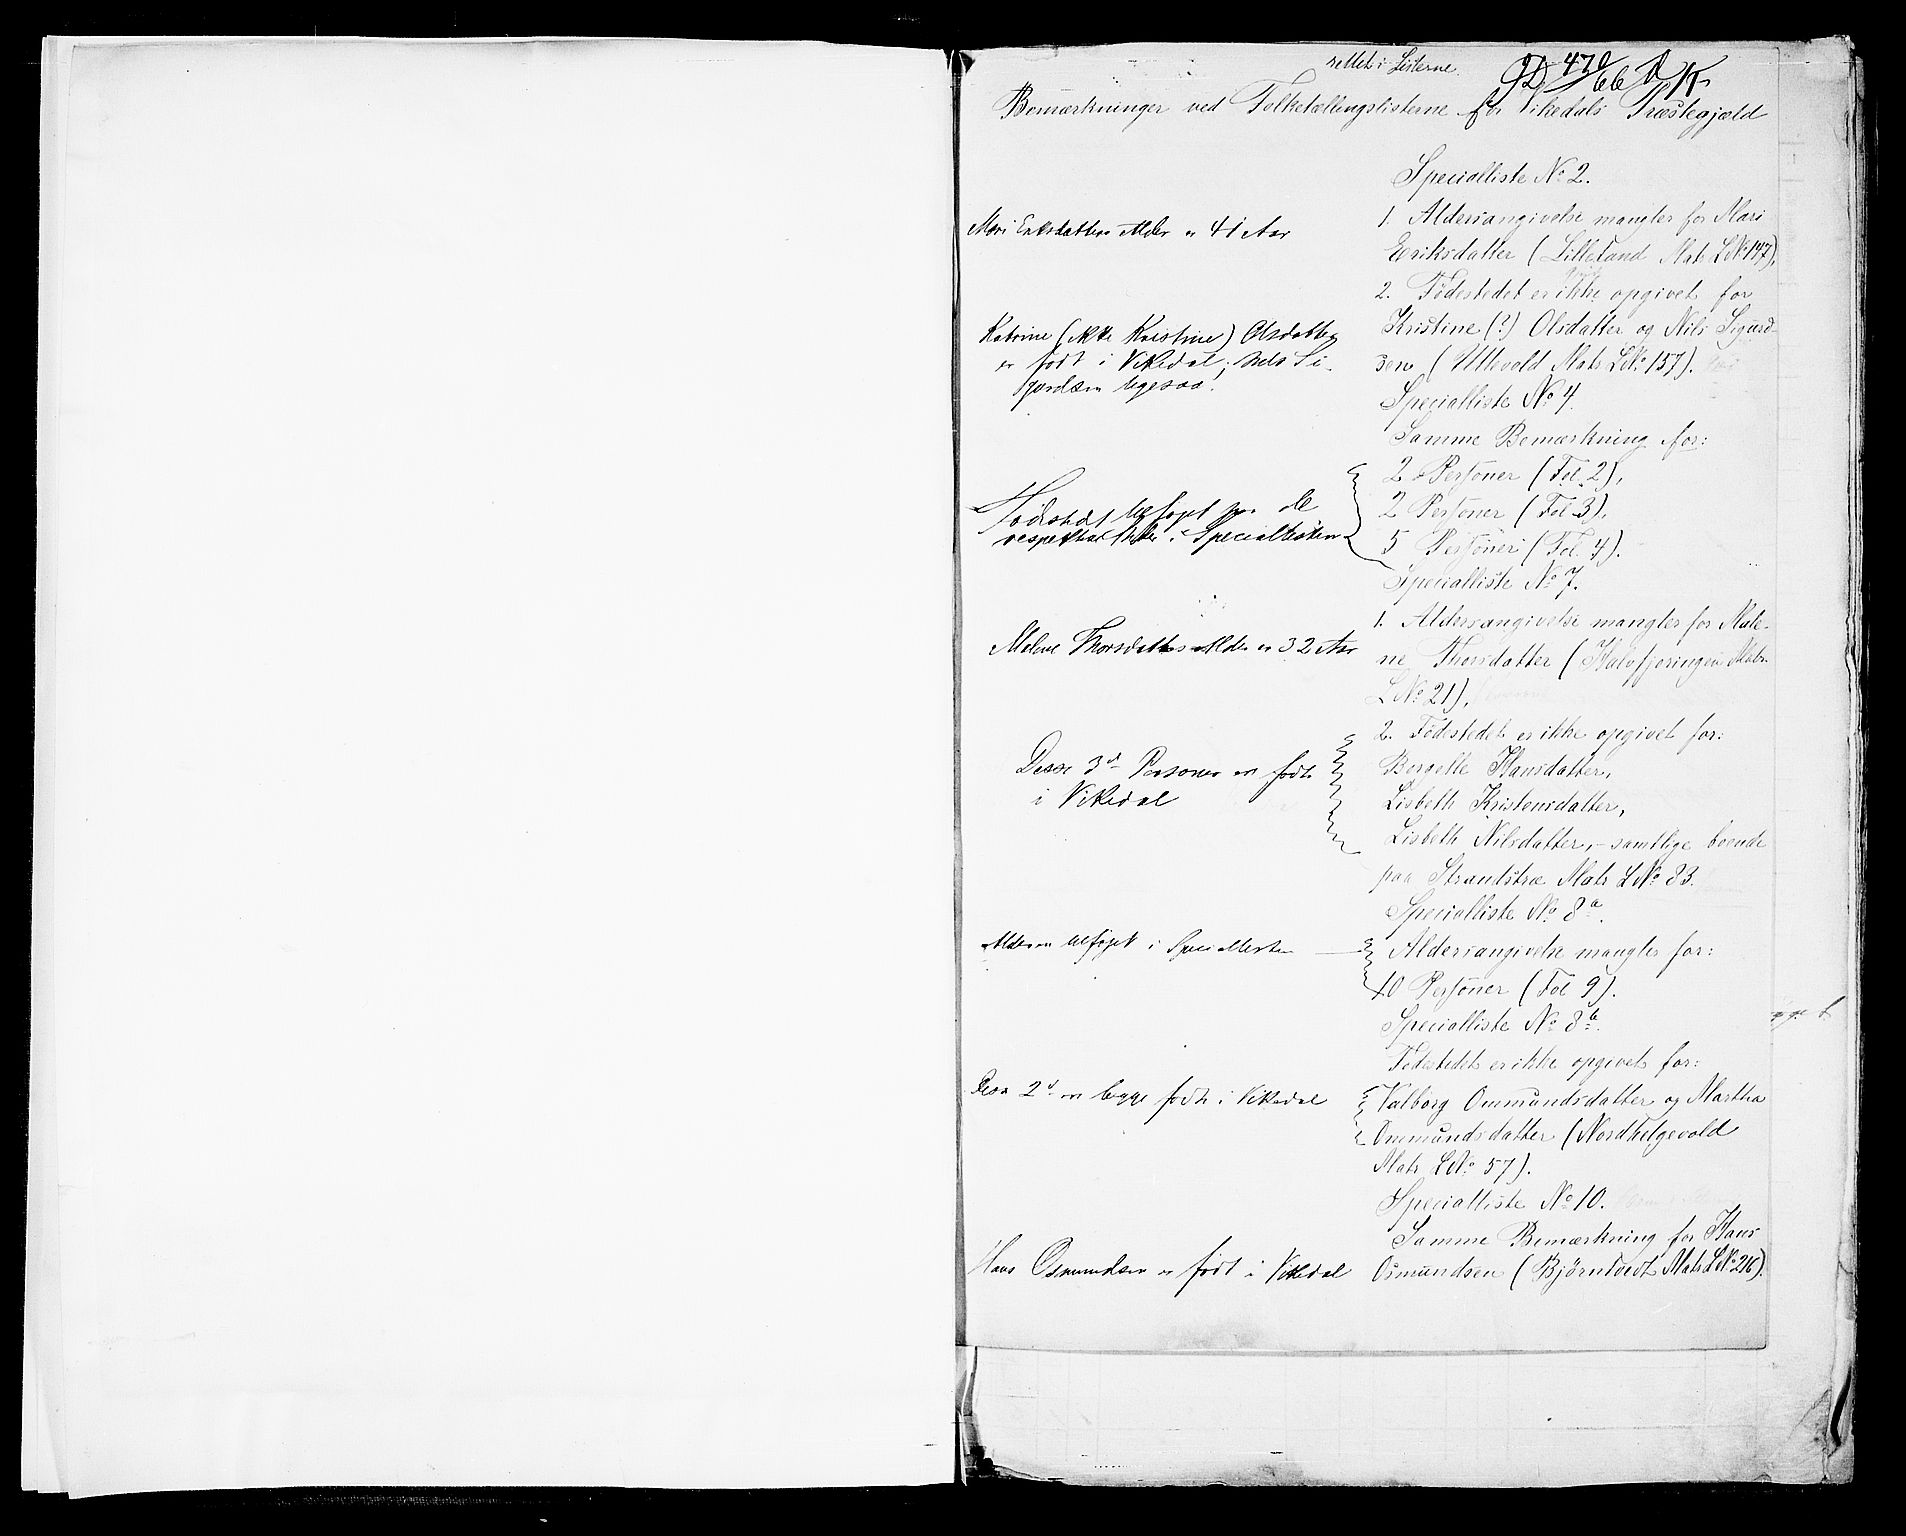 rettet i Listerne.
Bemærkninger ved Folketællingslisterne for Vikedals Præstegjæld
Specialliste No 2.
1. Aldersangivelse mangler for Mari
Eriksdatter (Lilleland Matr LNo 147),
2. Fødestedet er ikke opgivet for
Kristine (?) Olsdatter og Nils Sigurd-
sen (Ullevold Matr LNo 157).
Specialliste No 4.
Samme Bemærkning for:
2 Personer (Fol. 2),
2 Personer (Fol 3),
5 Personer (Fol. 4).
Specialliste No 7.
1. Aldersangivelse mangler for Male-
ne Thorsdatter (Halvfjeringen Matr.
LNo 21),
2. Fødestedet er ikke opgivet for:
Borgelle Hansdatter,
Lisbeth Kristensdatter,
Lisbeth Nilsdatter, - samtlige boende
paa Strandstræ Matr LNo 83.
Specialliste No 8a.
Aldersangivelse mangler for:
10 Personer (Fol 9).
Specialliste No 8b.
Fødestedet er ikke opgivet for:
Valborg Ommundsdatter og Martha
Ommundsdatter (Nordhelgevold
Matr LNo 57).
Specialliste No 10.
Samme Bemærkning for Hans
Osmundsen (Bjørntvedt Matr LNo 216).
Mari Eriksdatters Alder er 41 Aar
Katrine (ikke Kristine) Olsdatter
er født i Vikedal; Nels Si-
gurdsen ligesaa.
Fødested tilføjet paa de
respektive Steder i Speciallisten
Malene Thorsdatters Alder er 32 Aar
Disse 3de Personer er født
i Vikedal
Alderen tilføjet i Speciallisten
Disse 2de er begge født i Vikedal
Hans Osmundsen er født i Vikedal